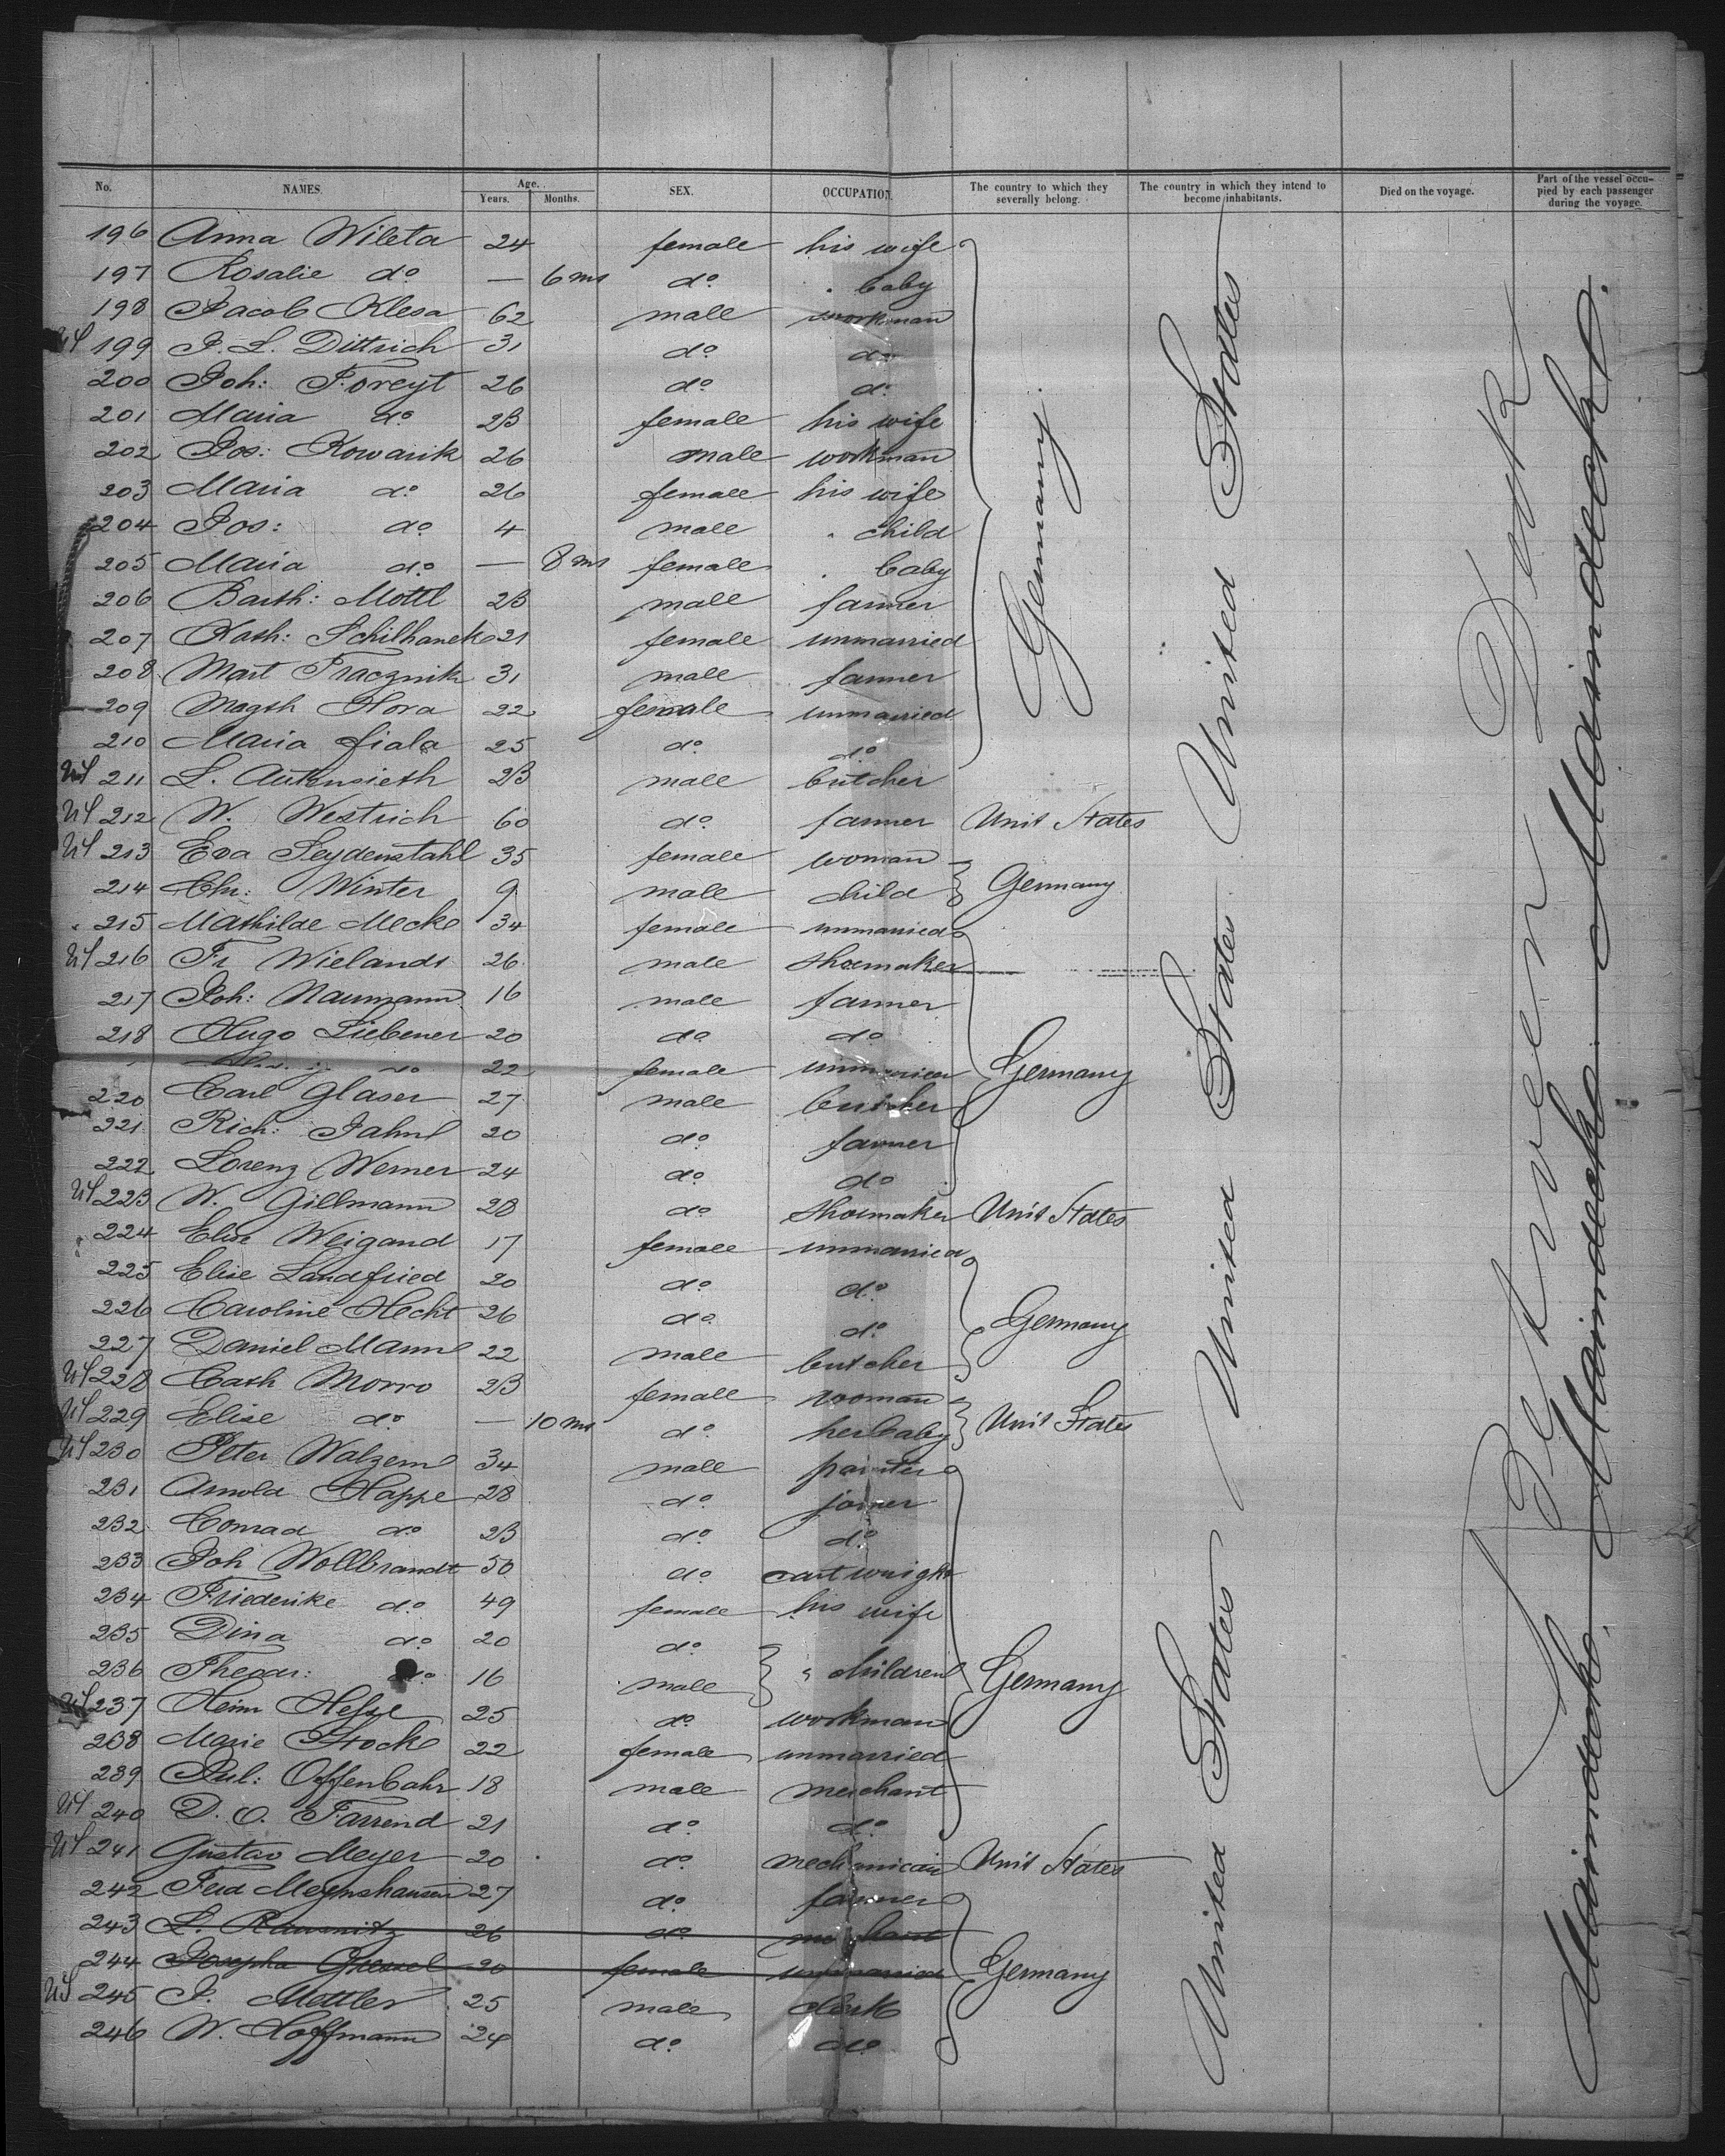 No. NAMES. Age. Years. Months. SEX. OCCUPATION. The country to which they severally belong. The country in which they intend to become inhabitants. Died on the voyage. Part of the vessel occupied by each passenger during the voyage.
196 Anna Wileta 24 female his wife
197 Rosalie do — 6 ms do baby
198 Jacob Klesa 62 male workman
US 199 J. L. Dittrich 31 do do
200 Joh: Foreyt 26 do do
201 Maria do 23 female his wife
202 Jos: Kowarik 26 male workman
203 Maria do 26 female his wife
204 Jos: do 4 male child
205 Maria do — 8 ms female baby
206 Barth: Mottl 23 male farmer
207 Kath: Schilhanek 21 female unmarried
208 Mart Tracznik 31 male farmer
209 Magth Hora 22 female unmarried
210 Maria Fiala 25 do do
Germany
US 211 L. Autenrieth 23 male butcher
US 212 W. Westrich 60 do farmer Unit States
US 213 Eva Seydenstahl 35 female woman
214 Chr: Winter 9 male child
Germany
215 Mathilde Mecke 34 female unmarried
US 216 Fr Wielands 26 male shoemaker
217 Joh: Naumann 16 male farmer
218 Hugo Liebener 20 do do
do 22 female unmarried
220 Carl Glaser 27 male butcher
221 Rich: Jahn 20 do farmer
222 Lorenz Werner 24 do do
Germany
US 223 W. Gillmann 28 do shoemaker Unit States
224 Elise Weigand 17 female unmarried
225 Elise Landfried 20 do do
226 Caroline Hecht 26 do do
227 Daniel Mann 22 male butcher
Germany
US 228 Cath Morro 23 female woman
US 229 Elise do — 10 ms do her baby
Unit States
US 230 Peter Walzem 34 male painter
231 Arnold Happe 28 do joiner
232 Conrad do 23 do do
233 Joh Wollbrandt 50 do cartwright
234 Friederike do 49 female his wife
235 Dina do 20 do
236 Theodr: do 16 male children
US 237 Heinr Hesse 25 do workman
238 Marie Stocke 22 female unmarried
239 Jul: Offenbahr 18 male merchant
US 240 D. O. Farrend 21 do do
Germany
US 241 Gustav Meyer 20 do mechanican Unit States
242 Ferd Meynshausen 27 do farmer
243 L. 26 do
244 Josepha 20 female unmarried
US 245 J. Mettler 25 male clerk
246 W. Hoffmann 24 do do
Germany
United States United States United States United States
Between Deck
Maindeck. Maindeck. Maindeck.